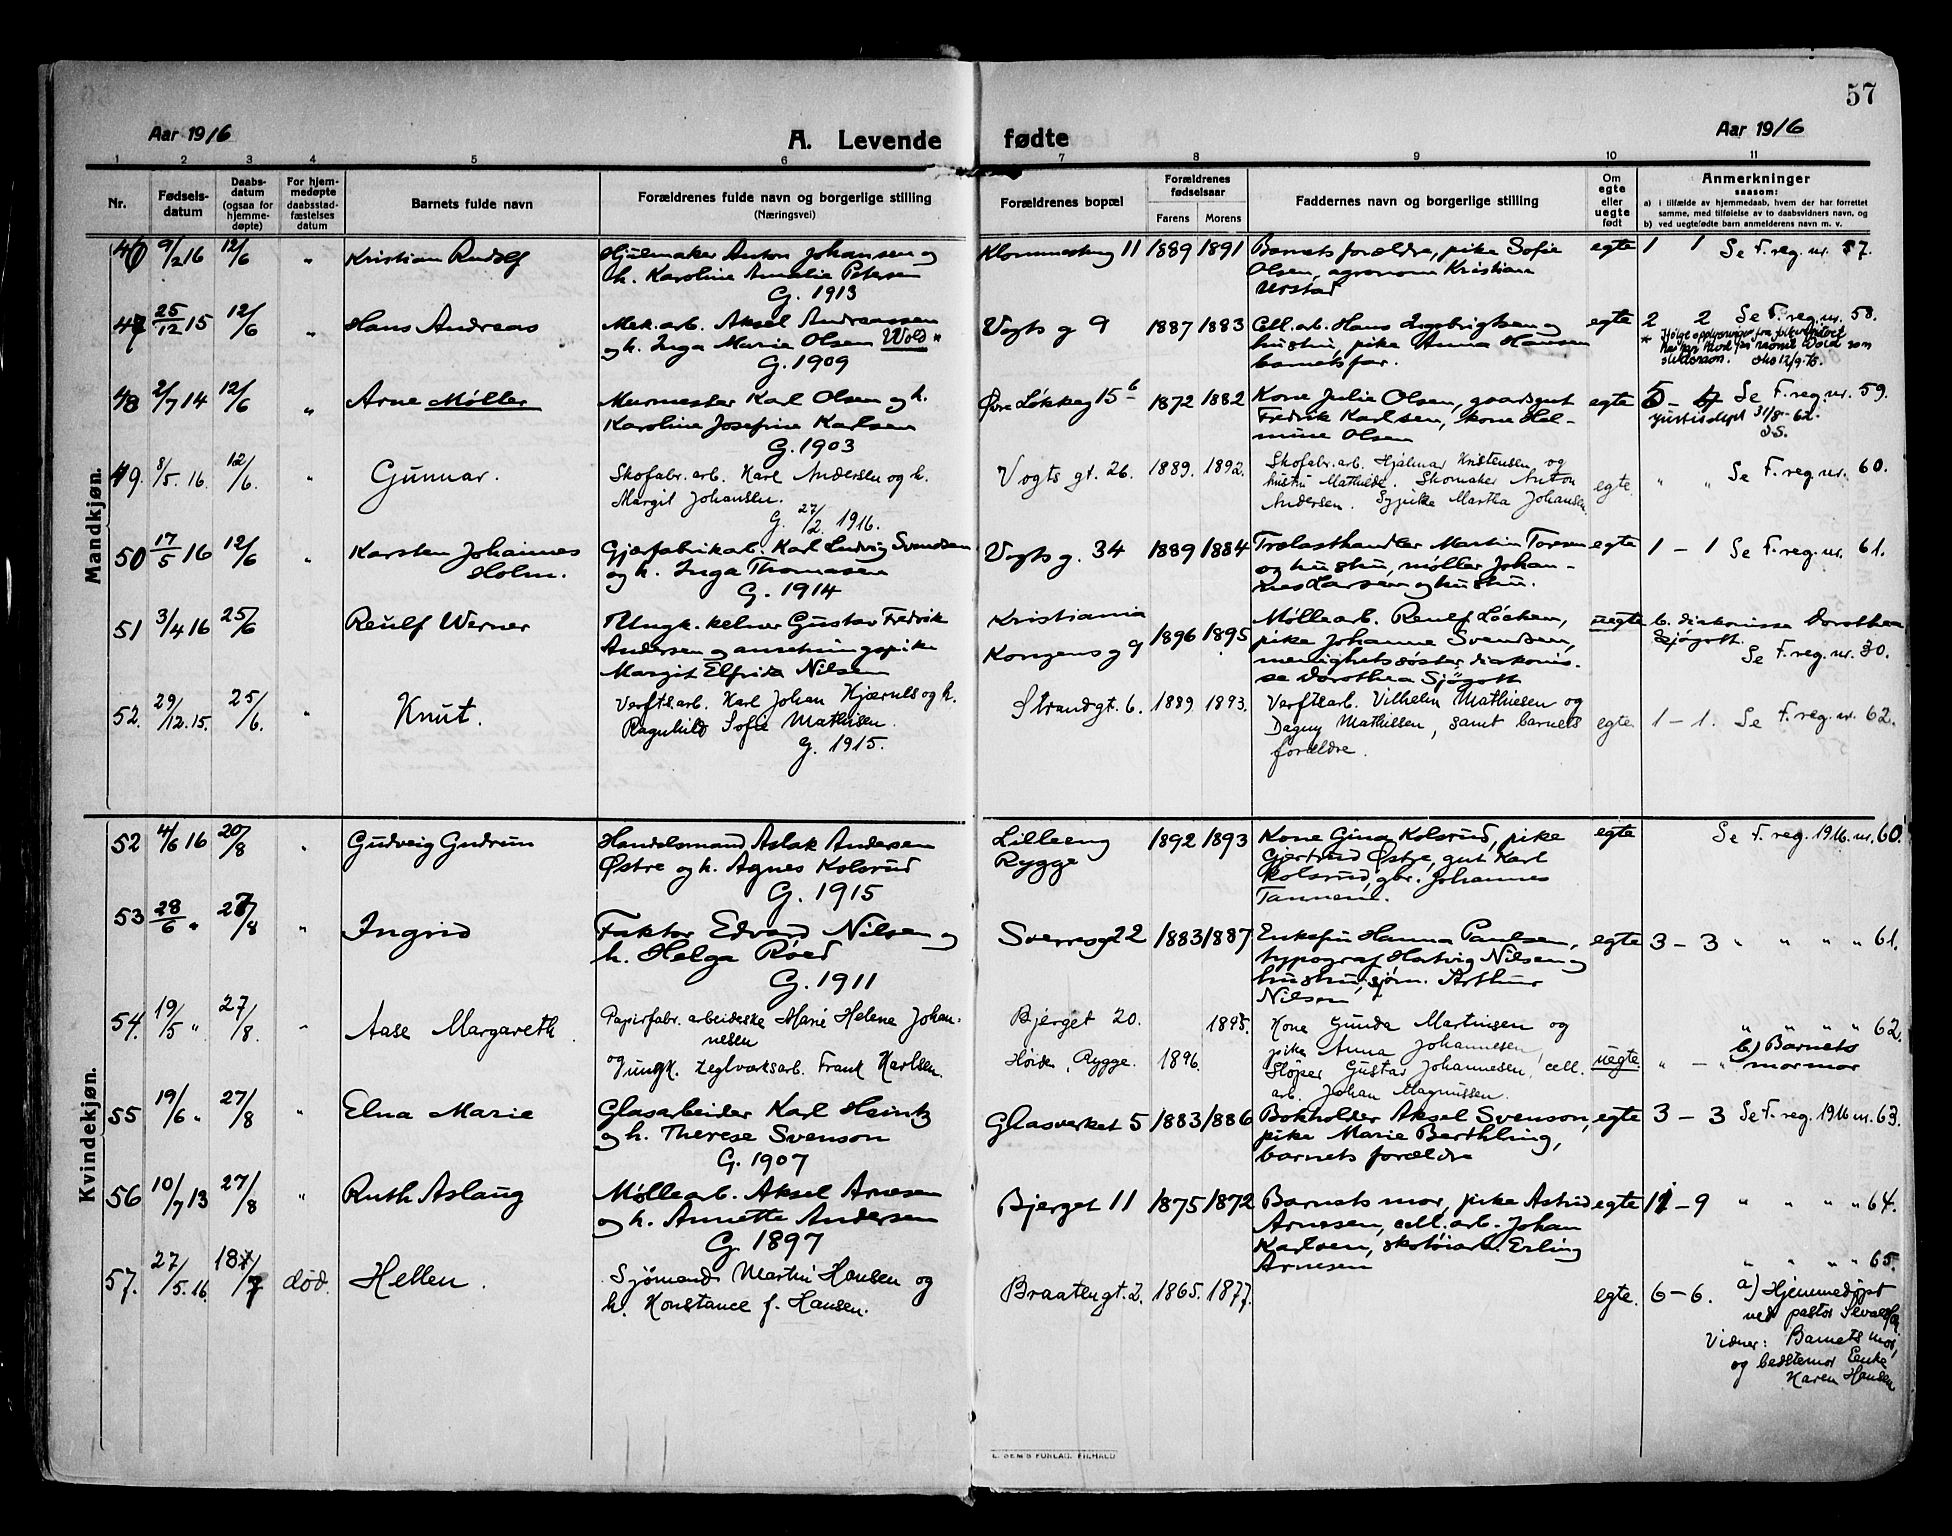 57
Aar 1916
A. Levende
fødte
Aar 1916
1 2 3 4 5 6 7 8 9 10 11
Nr.
Fødsels-
datum
Daabs-
datum
(ogsaa for
hjemme-
døpte)
For hjem-
medøpte
daabsstad-
fæstelses
datum
Barnets fulde navn
Forældrenes fulde navn og borgerlige stilling
(Næringsvei)
Forældrenes bopæl
Forældrenes
fødselsaar
Farens Morens
Faddernes navn og borgerlige stilling
Om
egte
eller
uegte
født
Anmerkninger
saasom:
a) i tilfælde av hjemmedaab, hvem der har forrettet
samme, med tilføielse av to daabsvidners navn, og
b) ved uegtefødte barn anmelderens navn m. v.
Mandkjøn.
46 9/2 16 12/6 " Kristian Rudolf
Hjulmaker Anton Johansen og
h. Karoline Amalie Petersen
G. 1913
11 1889 1891
Barnets forældre, pike Sofie
Olsen, agronom Kristian
Urstad
egte 1 1 Se F. reg. nr. 57.
47 25/12 15 12/6 " Hans Andreas
Mek. arb. Aksel Andreassen
og h. Inga Marie Olsen Wold *
G. 1909
Vogts g 9 1887 1883
Cell. arb. Hans Ingebrigtsen og
hustru, pike Anna Hansen
barnets far.
egte 2 2 Se F. reg. nr. 58.
* Ifølge oplysninger fra folkeregisteret
har han Wold som
slektsnavn. 12/9-75.
48 2/7 14 12/6 " Arne Møller
Murmester Karl Olsen og h.
Karoline Josefine Karlsen
G. 1903
Øvre Løkkeg 15 b 1872 1882
Kone Julie Olsen, gaardsgut
Fredrik Karlsen, kone Hel-
mine Olsen
egte 5 - Se F. reg. nr. 59.
Justisdept 31/8-62.
49. 8/5. 16. 12/6. " Gunnar.
Skofabr. arb. Karl Andersen og h.
Margit Johansen.
G. 27/2. 1916.
Vogts gt. 26. 1889. 1892.
Skofabr. arb. Hjalmar Kristensen og
hustru Mathilde. Skomaker Anton
Andersen. Sypike Martha Johansen
egte. " " Se F. reg. nr. 60.
50 17/5 16 12/6 " Karsten Johannes
Holm.
Gjærfabrikarb. Karl Ludvig Svendsen
og h. Inga Thomasen
G. 1914
Vogts g. 34 1889 1884
Trælasthandler Martin Torsen
og hustru, møller Johan-
nes Larsen og hustru.
egte 1 - 1 Se F. reg. nr. 61.
51 3/4 16 25/6 Reulf Werner
Ungk. kelner Gustav Fredrik
Andersen og anretningspike
Margit Elfrida Nilsen
Kristiania
Kongens g 9
1896 1895
Møllearb. Reulf Løcken,
pike Johanne Svendsen,
menighetssøster, diakonis-
se Dorothea Sjögott
uegte b. diakonisse Dorothea
Sjögott.
Se F. reg. nr. 30.
52. 29/12. 15. 25/6. " Knut.
Verftsarb. Karl Johan Hjærnes og h.
Ragnhild Sofie Mathisen.
G. 1915.
Strandgt. 6. 1889. 1893.
Verftsarb. Vilhelm Mathiesen og
Dagny Mathissen, samt barnets
forældre.
egte. 1 - 1. Se F. reg. nr. 62.
Kvindekjøn.
52 4/6 16 20/8 " Gudveig Gudrun
Handelsmand Aslak Andersen
Østre og h. Agnes Kolsrud
G. 1915
Lilleeng
Rygge
1892 1893
Kone Gina Kolsrud, pike
Gjertrud Østre, gut Karl
Kolsrud, gbr. Johannes
Tannem.
egte Se F. reg. 1916 nr. 60.
53 28/6 " 27/8 " Ingrid
Faktor Edvard Nilsen og
h. Helga Røed
G. 1911
Sverresg 22 1883 1887
Enkefru Hanna Paulsen,
typograf Hartvig Nilsen og
hustru, sjøm. Arthur
Nilsen
egte 3 - 3 " " " " 61.
54. 19/5 " 27/8. " Aase Margareth.
Papirfabr. arbeiderske Marie Helene Johan-
nesen
og ungk. teglværksarb. Frank Karlsen.
Bjerget 20. 1895.
Høiden, Rygge. 1896.
Kone Gunda Martinsen og
pike Anna Johannesen,
Støper Gustav Johannesen, cell.
arb. Johan Magnussen.
uegte. " - " " " " " 62.
b) Barnets
mormor
55 19/6 " 27/8 " Elna Marie
Glasarbeider Karl Heintz
og h. Therese Svenson
G. 1907
Glasverket 5 1883 1886
Bokholder Aksel Svenson,
pike Marie Berthling,
barnets forældre
egte 3 - 3 Se F. reg. 1916 nr. 63.
56 10/7 13 27/8 " Ruth Aslaug
Møllearb. Aksel Arnesen
og h. Annette Andersen
G. 1897
Bjerget 11 1875 1872
Barnets mor, pike Astrid
Arnesen, cell. arb. Johan
Karlsen, skotøiarb. Erling
Arnesen
egte 11 - 9 " " " " 64.
57. 27/5. 16. 18/7 død. Hellen.
Sjømand Martin Hansen og
h. Konstance f. Hansen.
Braatengt. 2. 1865. 1877.
egte. 6 - 6. " " " " 65.
a) Hjemmedøpt
ved pastor
Vidner: Barnets mor,
og bedstemor Enke
Karen Hansen
E. SEM'S FORLAG, FR.HALD